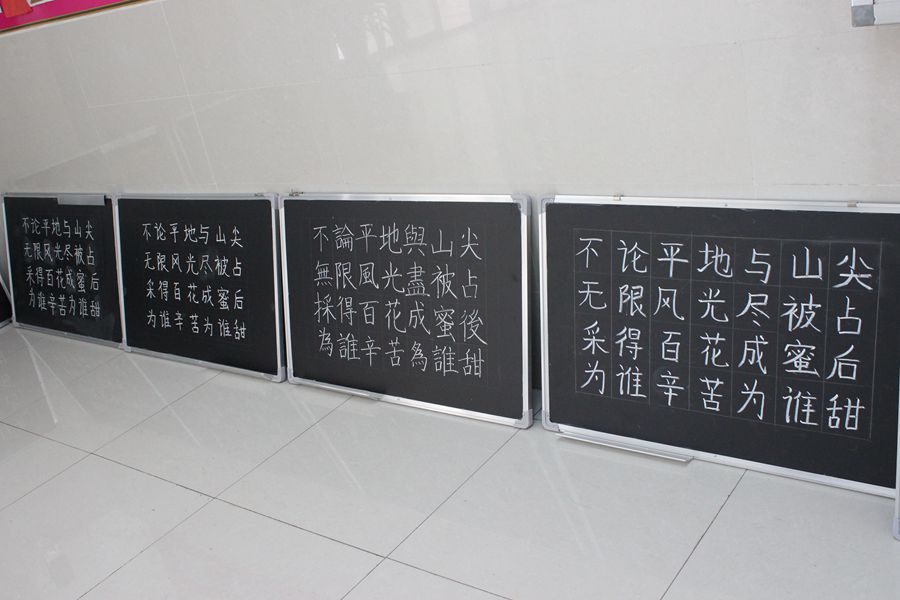 不论平地与山尖
无限风光尽被占
采得百花成蜜后
为谁辛苦为谁甜
不论平地与山尖
无限风光尽被占
采得百花成蜜后
为谁辛苦为谁甜
不論平地與山尖
無限風光盡被占
採得百花成蜜後
為誰辛苦為誰甜
不论平地与山尖
无限风光尽被占
采得百花成蜜后
为谁辛苦为谁甜